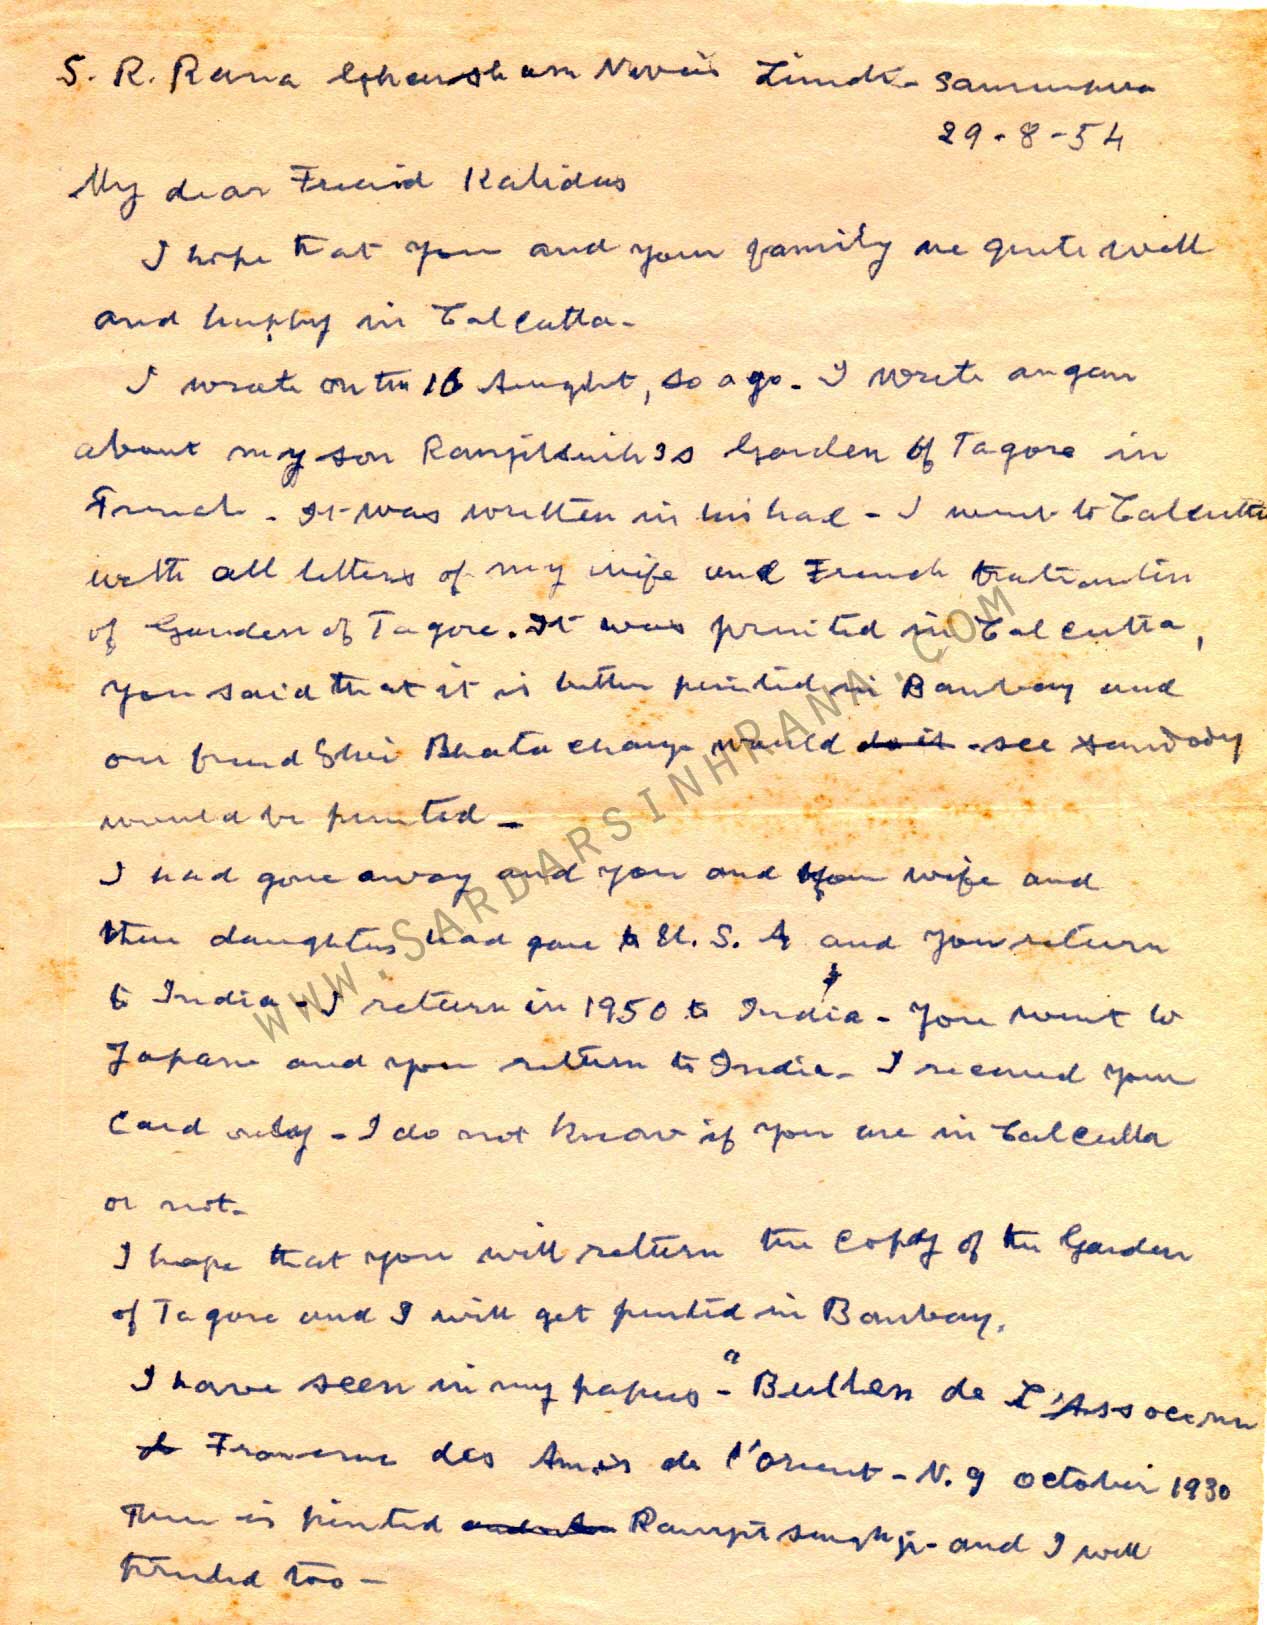 S. R. Rana Ghansham Nivas Limdi - Saurashtra
29-8-54
My dear Friend Kalidas
I hope that you and your family are quite well
and happy in Calcutta -
I wrote on the 16 Aught, so ago - I write angan
about my son Ranjitsinh's Garden of Tagore in
French - It was written in his had - I went to Calcutta
with all letters of my wife and French
of Garden of Tagore. It was printed in Calcutta,
you said that it is better printed in Bombay and
our friend Shri Bhatacharya would do it - see
would be printed -
I had gone away and you and your wife and
three daughters had gone to U. S. A and you return
to India - I return in 1950 to India - You went to
Japan and you return to India - I received your
Card only - I do not know if you are in Calcutta
or not -
I hope that you will return the copy of the Garden
of Tagore and I will get printed in Bombay.
I have seen in my papers - "Bulleten de L'Assocern
Francaise des Amis de l'Orient - N. 9 October 1930
There is printed Ranjit Singhji - and I will
printed too -
WWW.SARDARSINHRANA.COM